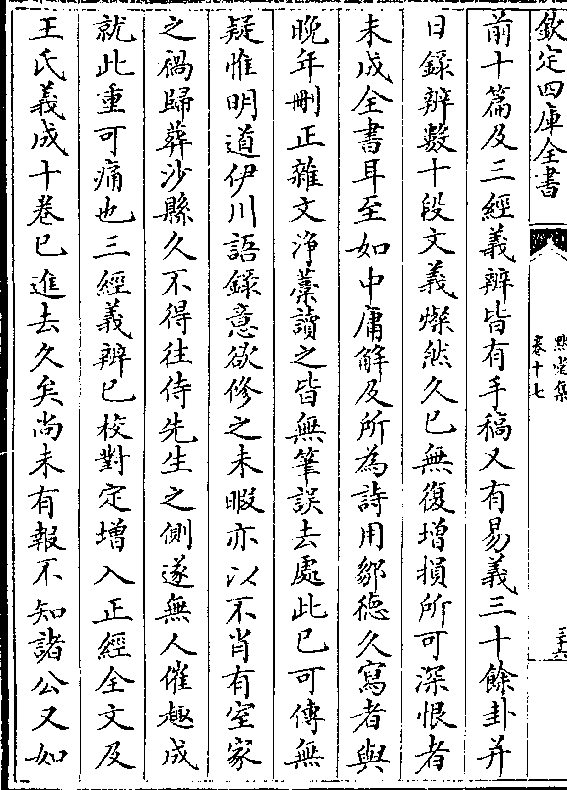 欽定四庫全書
默堂集
卷十七
前十篇及三經義辨皆有手稿又有易義三十餘卦并
日錄辨數十段文義燦然久已無復增損所可深恨者
未成全書耳至如中庸解及所為詩用鄒德久寫者與
晚年刪正雜文淨藁讀之皆無筆誤去處此已可傳無
疑惟明道伊川語錄意欲修之未暇亦以不肖有室家
之禍歸葬沙縣久不得往侍先生之側遂無人催趣成
就此重可痛也三經義辨已校對定增入正經全文及
王氏義成十卷已進去久矣尚未有報不知諸公又如